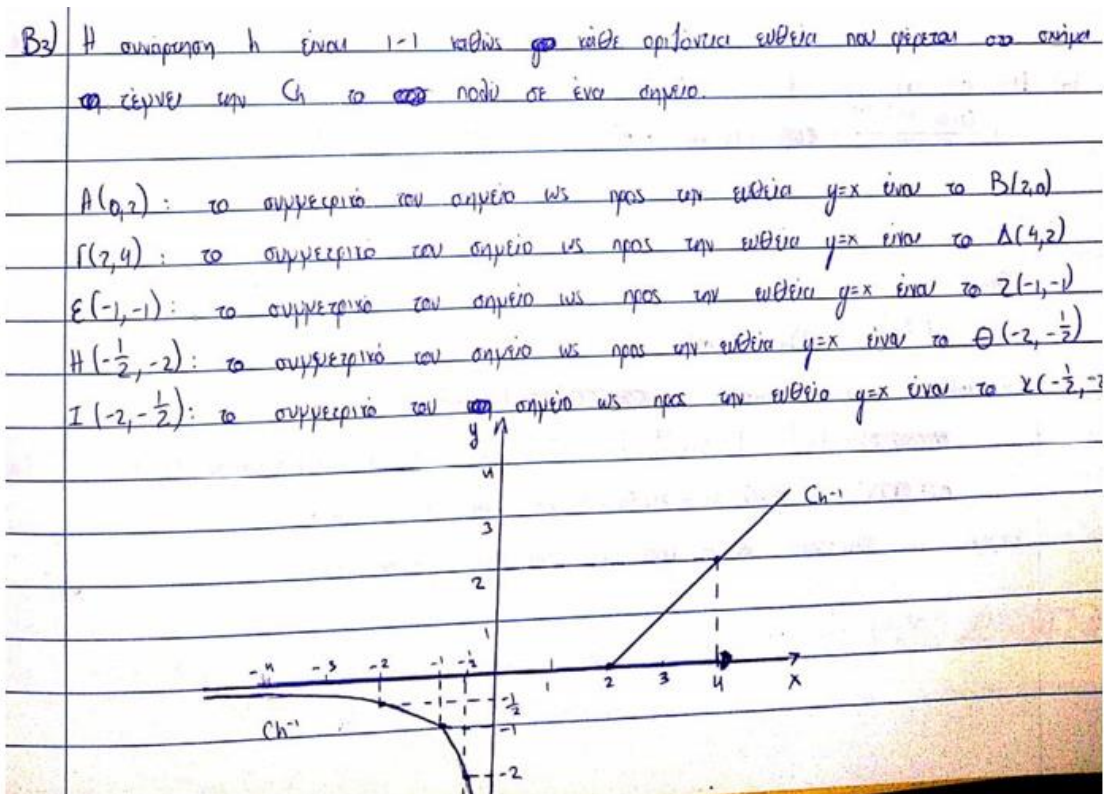 B3) Η συνάρτηση h είναι 1-1 καθώς κάθε οριζόντια ευθεία που φέρεται στο σχήμα
τέμνει την Ch το πολύ σε ένα σημείο.
Α(0,2): το συμμετρικό του σημείο ως προς την ευθεία y=x είναι το Β(2,0)
Γ(2,4): το συμμετρικό του σημείο ως προς την ευθεία y=x είναι το Δ(4,2)
Ε(-1,-1): το συμμετρικό του σημείο ως προς την ευθεία y=x είναι το Ζ(-1,-1)
Η(-1/2,-2): το συμμετρικό του σημείο ως προς την ευθεία y=x είναι το Θ(-2,-1/2)
Ι(-2,-1/2): το συμμετρικό του σημείο ως προς την ευθεία y=x είναι το Κ(-1/2,-2
y
4
Ch⁻¹
3
2
1
-4 -3 -2 -1 -1/2 1 2 3 4 x
-1/2
Ch⁻¹ -1
-2